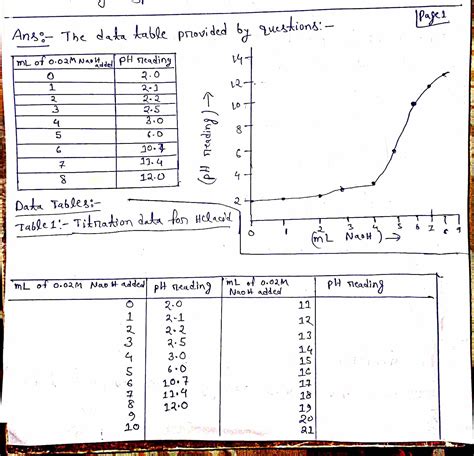 Page 1
Ans:- The data table provided by questions:-
mL of 0.02M NaOH added | pH reading
0 | 2.0
1 | 2.1
2 | 2.2
3 | 2.5
4 | 3.0
5 | 6.0
6 | 10.7
7 | 11.4
8 | 12.0
14
12
10
8
6
4
2
(pH reading) →
0 1 2 3 4 5 6 7 8 9
(mL NaOH) →
Data Tables:-
Table 1:- Titration data for HCl acid
mL of 0.02M NaOH added | pH reading | mL of 0.02M NaOH added | pH reading
0 | 2.0 | 11
1 | 2.1 | 12
2 | 2.2 | 13
3 | 2.5 | 14
4 | 3.0 | 15
5 | 6.0 | 16
6 | 10.7 | 17
7 | 11.4 | 18
8 | 12.0 | 19
9 | | 20
10 | | 21